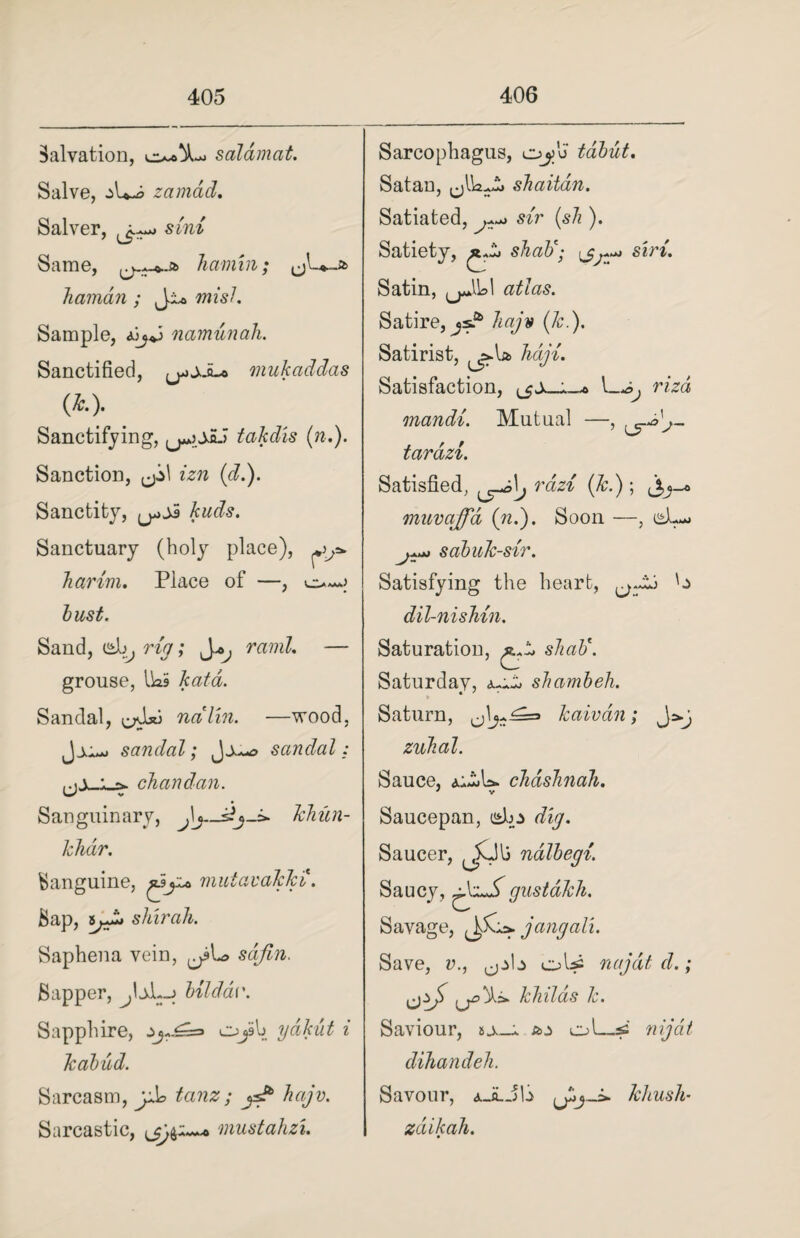 405
Salvation, سلامت salámat.
Salve, ضماد zamád.
Salver, سینی síní
Same, همین hamín; همان
hamán ; مثل misl.
Sample, نمونه namúnah.
Sanctified, مقدس mukaddas
(k.).
Sanctifying, تقدیس takdís (n.).
Sanction, اذن izn (d.).
Sanctity, قدس kuds.
Sanctuary (holy place), حریم
harím. Place of —, بست
bust.
Sand, ریگ ríg; رمل raml. —
grouse, قطا katá.
Sandal, نعلین na'lín. —wood,
سندل sandal; صندل sandal;
چندن chandan.
Sanguinary, خونخوار khún-
khár.
Sanguine, متوقع mutavakki'.
Sap, شیره shírah.
Saphena vein, صافن sáfin.
Sapper, بیلدار bíldár.
Sapphire, یاقوت کبود yákút i
kabúd.
Sarcasm, طنز tanz; هجو hajv.
Sarcastic, مستهزی mustahzí.
406
Sarcophagus, تابوت tábút.
Satan, شیطان shaitán.
Satiated, سیر sír (sh ).
Satiety, شبع shab'; سیری sírí.
Satin, اطلس atlas.
Satire, هجو hajv (k.).
Satirist, هاجی hájí.
Satisfaction, رضا مندی rizá
mandí. Mutual —, تراضی
tarází.
Satisfied, راضی rází (k.); موفی
muvaffá (n.). Soon —, سبک
سیر sabuk-sír.
Satisfying the heart, دا نشین
dil-nishín.
Saturation, شبع shab'.
Saturday, شنبه shambeh.
Saturn, کیوان kaiván; زحل
zuhal.
Sauce, چاشنه cháshnah.
Saucepan, دیگ díg.
Saucer, نالبگی nálbegí.
Saucy, گستاخ gustákh.
Savage, جنگلی jangalí.
Save, v., نجات دادن naját d.;
خلاص کردن khilás k.
Saviour, نجات دهنده niját
dihandeh.
Savour, خوش ذائقه khush-
záikah.